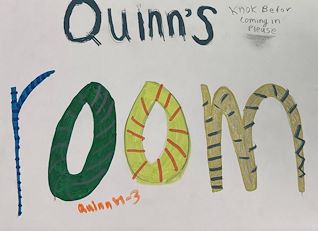 Quinn's
Knok Befor
coming in
Please
room